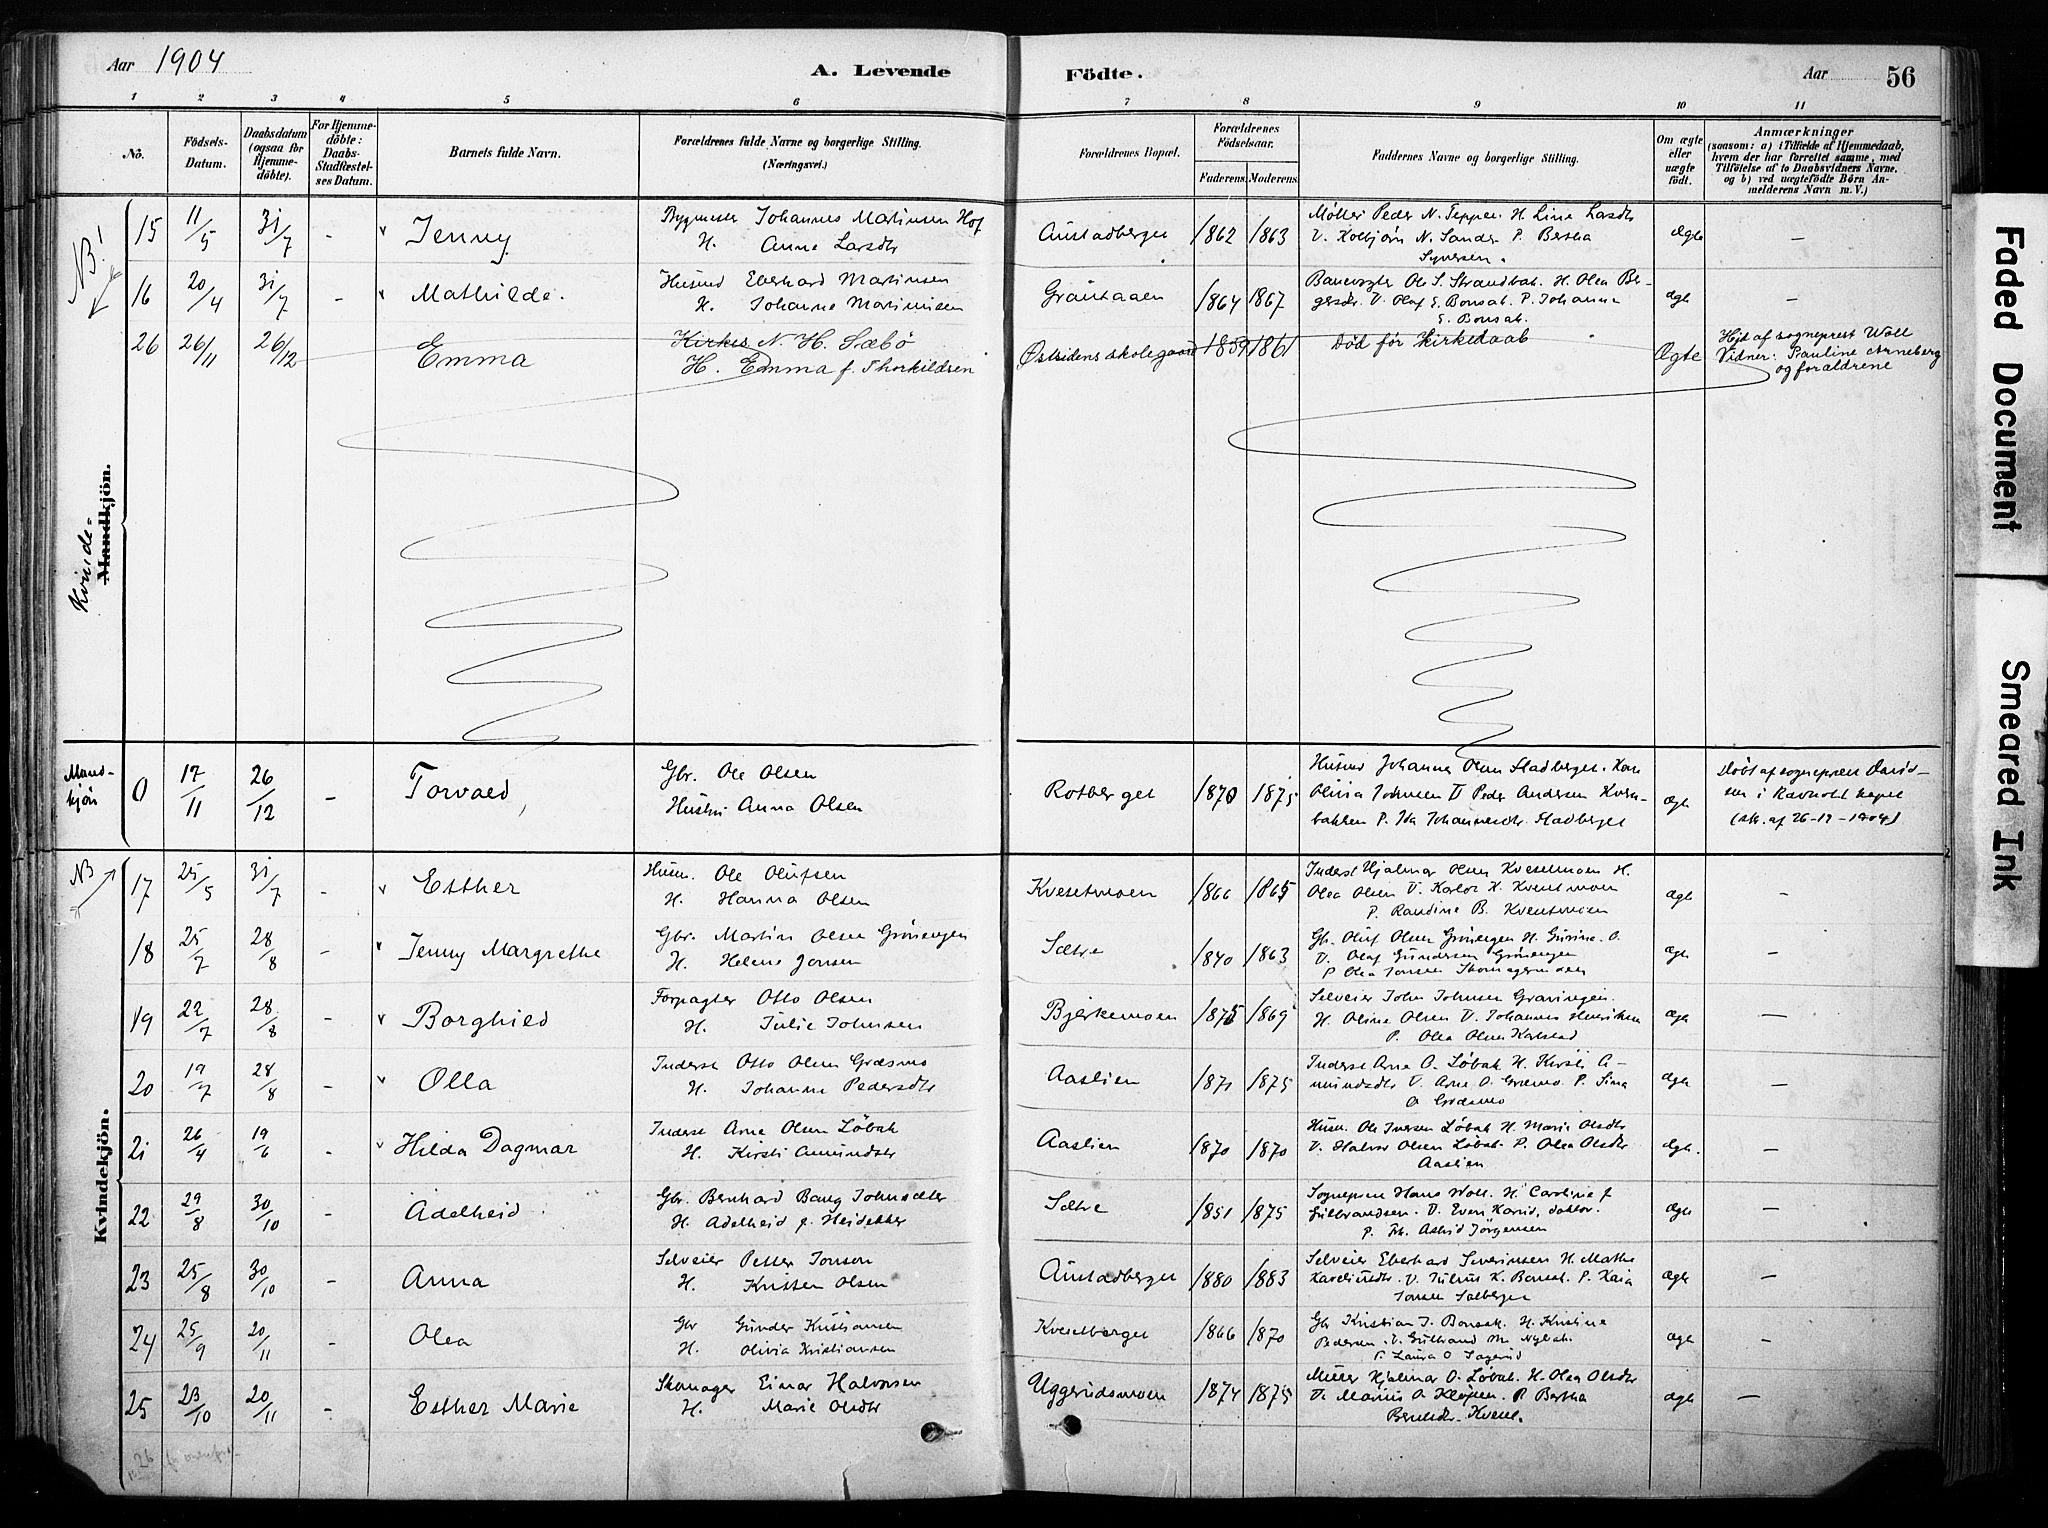 Aar 1904
A. Levende
Födte.
Aar
56
1 2 3 4 5 6 7 8 9 10 11
No.
Födsels-
Datum.
Daabsdatum
(ogsaa for
Hjemme-
döbte).
For Hjemme-
döbte:
Daabs-
Stadfæstel-
ses Datum.
Barnets fulde Navn.
Forældrenes fulde Navne og borgerlige Stilling.
(Næringsvei.)
Forældrenes Bopæl.
Forældrenes
Födselsaar.
Faderens. Moderens.
Faddernes Navne og borgerlige Stilling.
Om ægte
eller
uægte
födt.
Anmærkninger
(saasom: a) i Tilfælde af Hjemmedaab,
hvem der har forrettet samme, med
Tilföielse af to Daabsvidners Navne.
og b) ved uægtefödte Börn An-
melderens Navn m. V.)
NB!
Kvinde-
Mandkjön.
15 11/5 31/7 - Jenny
Bygmester Johannes Martinsen Hof
H. Anne Larsdtr
Austadberget 1862 1863
Møller Peder N. Tepper. H. Line Larsdtr
V. Kolbjørn N. Sander P. Bertha
Syversen.
Ægte -
16 20/4 31/7 - Mathilde.
Husmd Eberhard Martinsen
H. Johanne Martinsen
1864 1867
Banevogter Ole S. Strandbak. H. Olea Ber-
gersdtr. V. Olaf E. Bonsak. P. Johanna
E. Bonsak.
ægte -
26 26/11 26/12 Emma
Kirkes. N. H. Sæbö
H. Emma f. Thorkildsen
Østsidens skolegaard 1859 1861
Död för kirkedaab
Ægte
Hjd af sogneprest Woll
Vidner: Pauline Arneberg
og forældrene
Mand-
kjön
0 17/11 26/12 - Torvald
Gbr. Ole Olsen
Hustru Anna Olsen
Rotberget 1870 1875
Husmd Johannes Olsen Stadberget. Kone
Olivia Johnsen V Peder Andersen Kvern-
bakken P. Ida Johannesdtr. Stadberget
ægte
Döbt af sogneprest David-
sen i Ravnholt kapel
(att. af 26-12-1904)
NB
Kvindekjön.
17 25/5 31/7 - Esther
Husm. Ole Olufsen
H. Hanna Olsen
Kvesetmoen 1866 1865
Inderst Hjalmar Olsen Kvesetmoen H.
Olea Olsen V. Karlot K. Kvesetmoen
P. Randine B. Kvesetmoen
ægte -
18 25/7 28/8 - Jenny Margrethe
Gbr. Martin Olsen Grönengen
H. Helene Jonsen
Sætre 1840 1863
Gb. Oluf Olsen Grönengen H. Gurine. O.
V. Olaf Gundersen Grönengen
P Olea Jonsen Skomagermoen
ægte -
19 22/7 28/8 - Borghild
Forpagter Otto Olsen
H. Julie Johnsen
Bjerkemoen 1875 1869
Selveier John Johnsen Graningen.
H. Oline Olsen V. Johannes Henriksen
P. Olea Olsen Karlstad
ægte -
20 19/7 28/8 - Olla
Inderst Otto Olsen Græsmo
H. Johanne Pedersdtr
Aaslien 1871 1875
Inderst Arne O. Löbak H. Kirsti A-
mundsdtr V. Arne O. Græsmo P. Sina
O Græsmo
ægte -
21 26/4 19/6 - Hilda Dagmar
Inderst Arne Olsen Löbak
H. Kirsti Amundsdtr
Aaslien 1870 1870
Husm. Ole Iversen Löbak H. Maria Olsdtr
V. Halvor Olsen Löbak. P. Olea Olsdtr
Aaslien
ægte. -
22 29/8 30/10 - Adelheid
Gbr. Bernhard Bang Johnsæter
H. Adelheid f. Heidekker
Sætre 1851 1875
Sogneprest Hans Woll. H. Caroline f
Gulbrandsen. V. Even Karid, doktor.
P. Frk. Astrid Jörgensen
ægte -
23 25/8 30/10 - Anna
Selveier Petter Jonson
H. Kristen Olsen
Austadberget 1880 1883
Selveier Eberhard Severinsen H. Mathe
V. Julius K. Bonsak. P. Kaia
Jonsen Solberget
ægte -
24 25/9 20/11 - Olea
Gbr Gunder Kristiansen
H. Olivia Kristiansen
Kvesetberget 1866 1870
Gbr Kristian I. Bonsak. H. Kristine
Pedersen. V. Gulbrand M. Nybak.
P. Laura O Sagerud
ægte -
25 23/10 20/11 - Esther Marie
Skomager Einar Halvorsen
H. Marie Olsdtr
Uggerudsmoen 1874 1875
Murer Hjalmar O. Löbak. H. Olea Olsdtr
V. Marius O. P. Bertha
Berntsdtr. Kveset.
ægte -
26
Faded Document
Smeared Ink